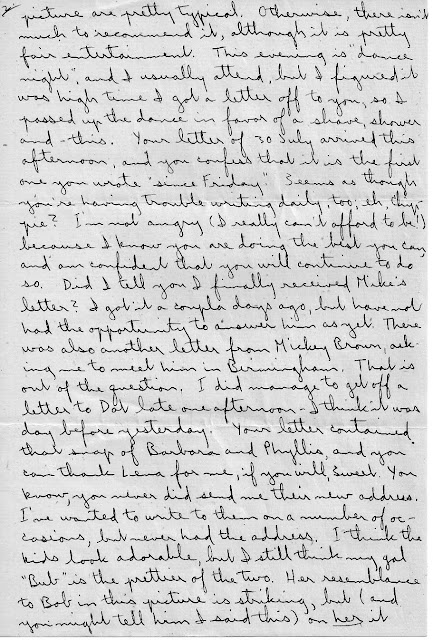 2/ picture are pretty typical. Otherwise, there isn't
much to recommend it, although it is pretty
fair entertainment. This evening is "dance
night", and I usually attend, but I figured it
was high time I got a letter off to you, so I
passed up the dance in favor of a shave, shower
and - this. Your letter of 30 July arrived this
afternoon, and you confess that it is the first
one you wrote "since Friday." Seems as though
you're having trouble writing daily too, eh,
pie? I'm not angry (I really can't afford to be!)
because I know you are doing the best you can,
and am confident that you will continue to do
so. Did I tell you I finally received Mike's
letter? I got it a coupla days ago, but have not
had the opportunity to answer him as yet. There
was also another letter from Mickey Brown, ask-
ing me to meet him in Birmingham. That is
out of the question. I did manage to get off a
letter to Dot late one afternoon - I think it was
day before yesterday. Your letter contained
that snap of Barbara and Phyllis, and you
can thank Lena for me, if you will, Sweet. You
know, you never did send me their new address.
I've wanted to write to them on a number of oc-
casions, but never had the address. I think the
kids look adorable, but I still think my gal
"Bub" is the prettier of the two. Her resemblance
to Bob in this picture is striking, but (and
you might tell him I said this) on her it